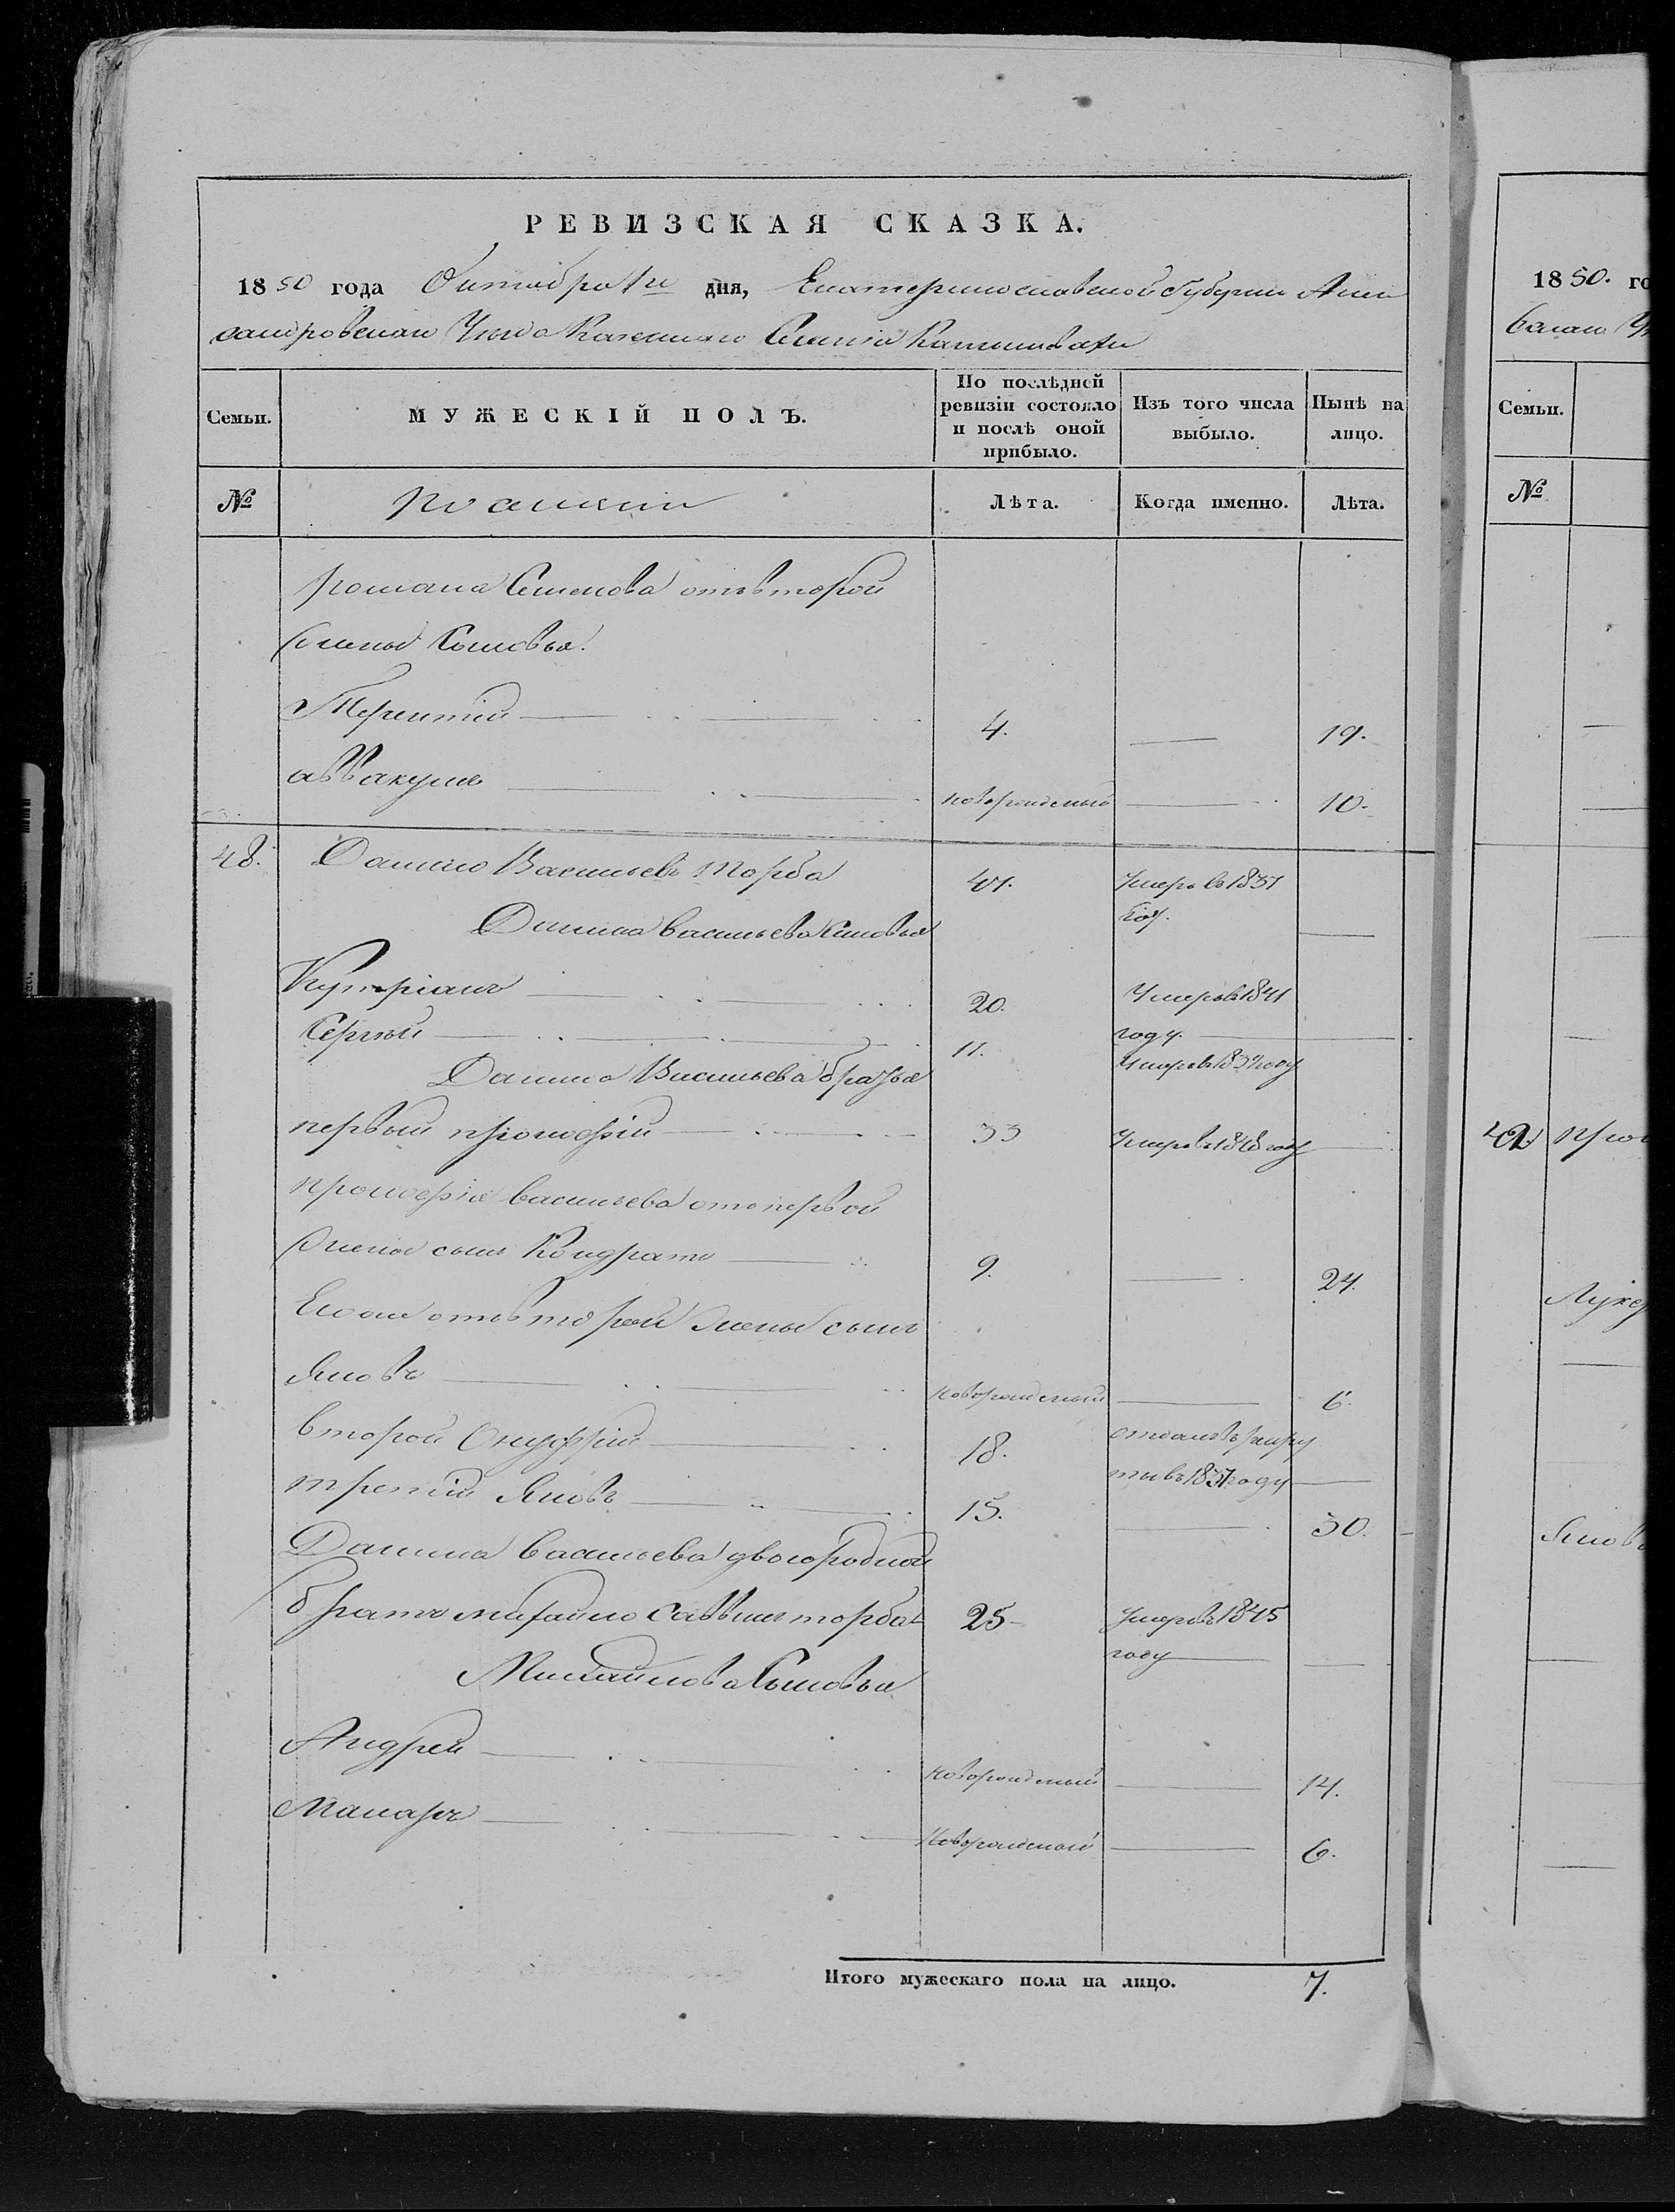 РЕВИЗСКАЯ СКАЗКА.
1850 года Октября 1го дня, Екатеринославской Губернии Алек
сандровскаго Уѣзда Казеннаго Селенія
Семьи.
МУЖЕСКІЙ ПОЛЪ.
По послѣдней ревизіи состояло и послѣ оной прибыло.
Изъ того числа выбыло.
Нынѣ на лицо.
№
Лѣта.
Когда именно.
Лѣта.
романа Семенова отъ второй
жены Сыновья
Терентій 4. 19.
аввакумъ новорожденый 10.
48. Данило Васильевъ Торба 41. Умеръ въ 1837
году.
Данила васильева сыновья
Купріанъ 20. Умеръ в 1841
году.
Сергѣй 11. Умеръ в 1837 году
Данила Васильева братья
первый прокофій 33 Умеръ въ 1848 году
прокофія васильева отъ первой
жены сынъ Кондратъ 9. 24.
Его же отъ второй жены сынъ
Яковъ новорожденый 6.
второй Онуфрій 18. отданъ въ рекру
ты въ 1837 году
третій Яковъ 15. 30.
Данила васильева двоюродной
братъ михайло Саввинъ торба 25 Умеръ в 1845
году
Михайлова Сыновья
Андрей новорожденый 14.
Макаръ Новорожденый 6.
Итого мужескаго пола на лицо. 7.
1850. го
Семьи.
№
42
Яковъ